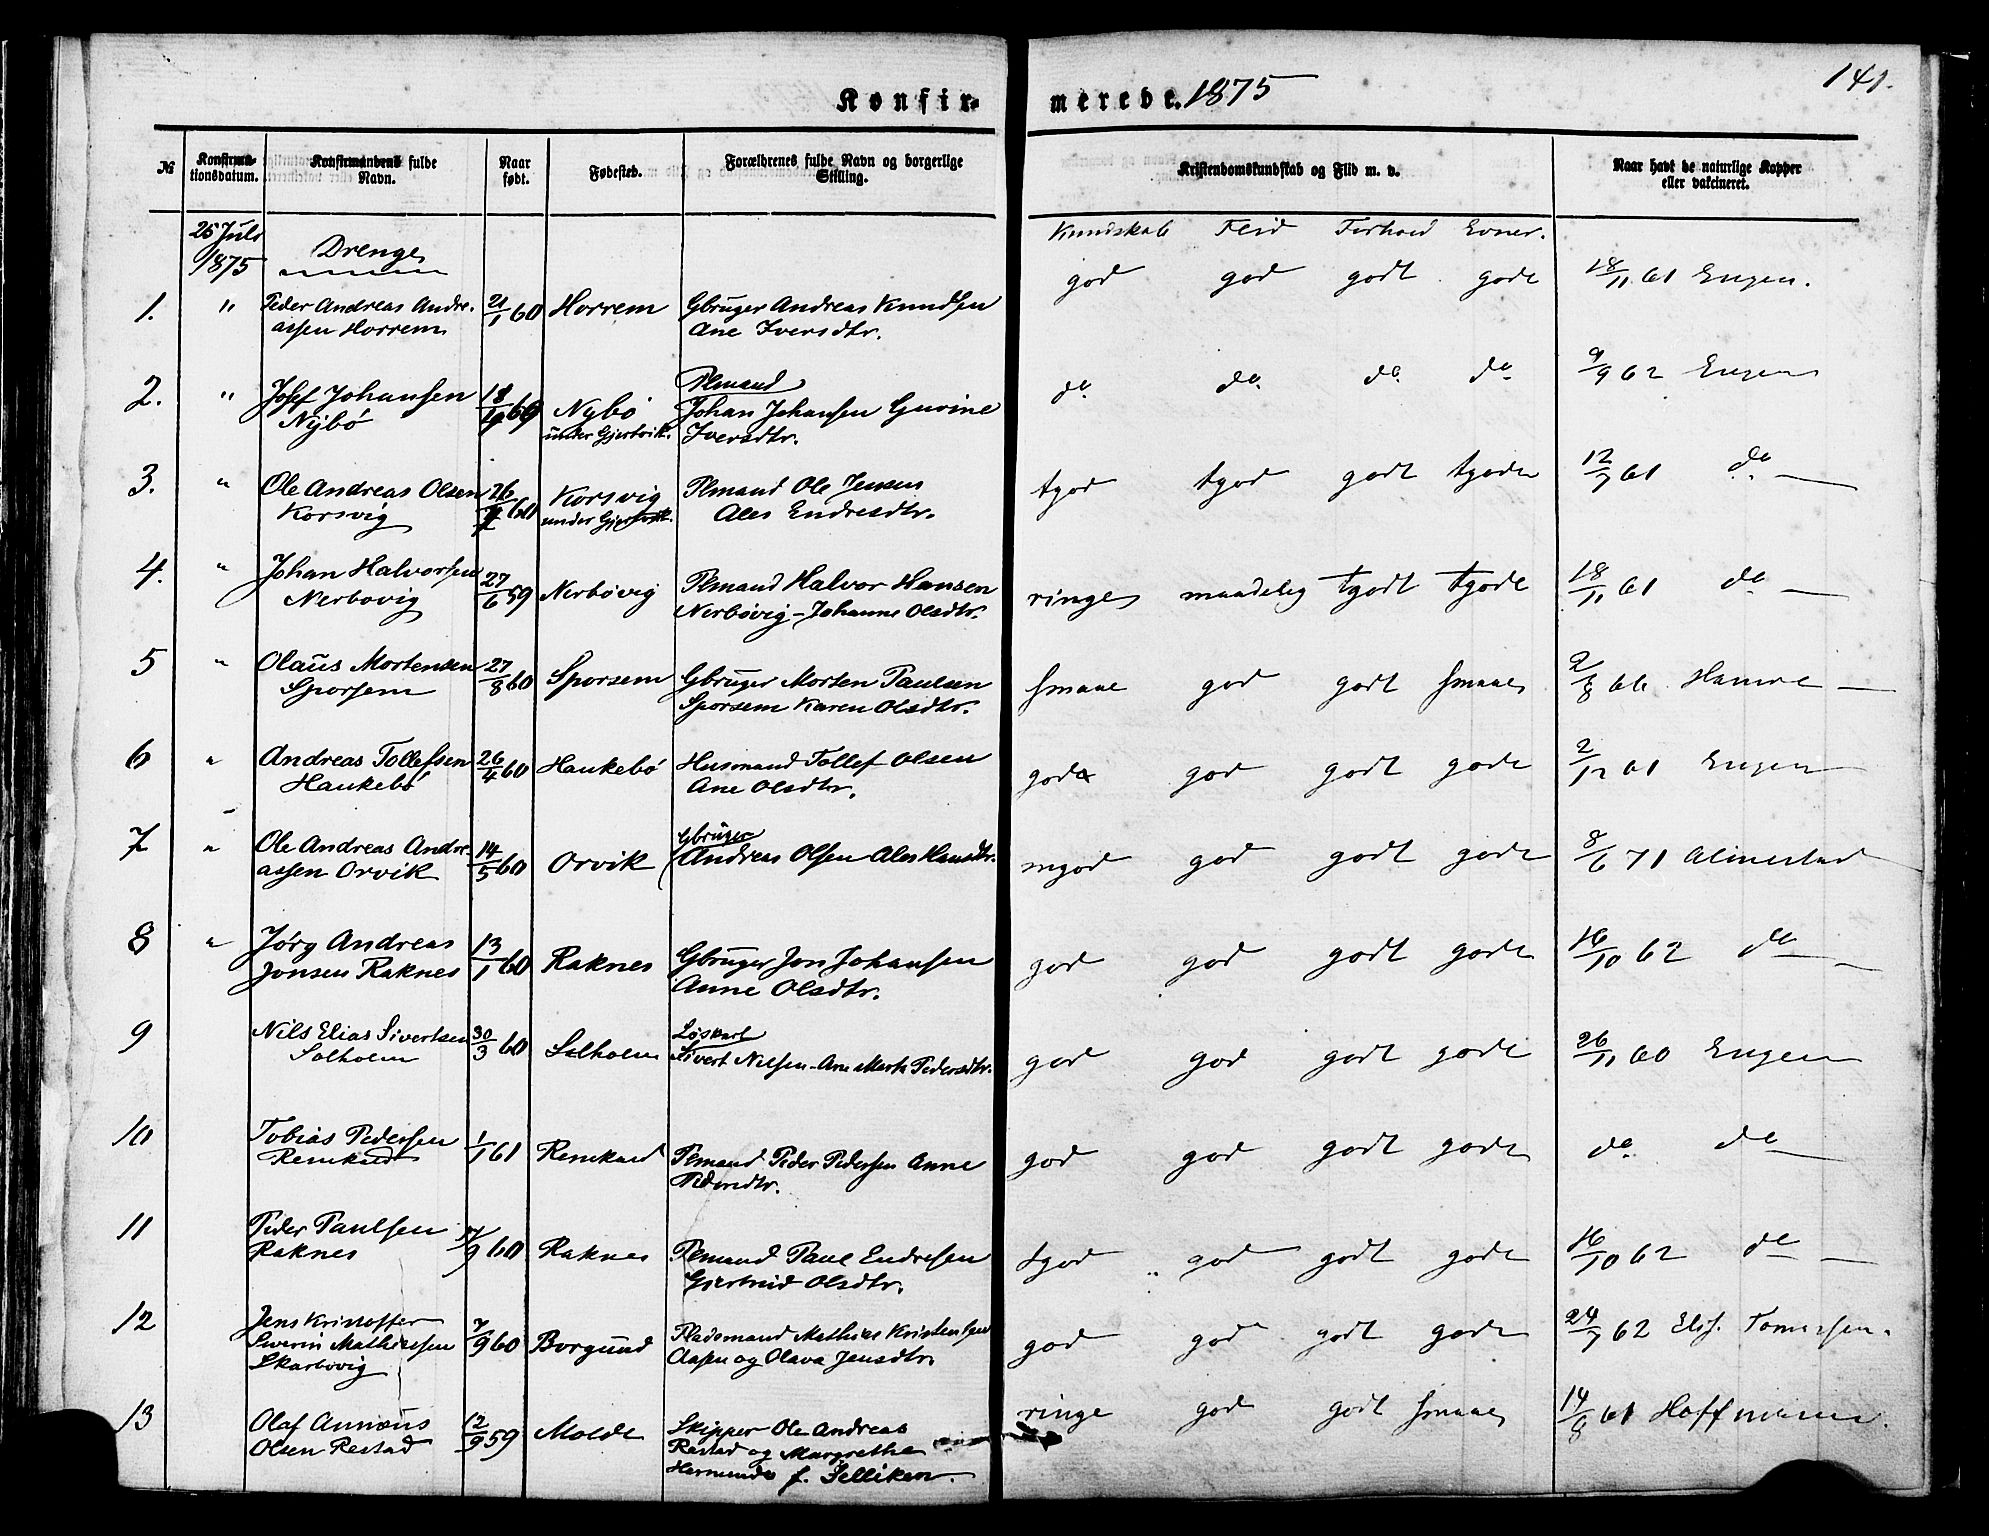 141.
Konfirmerede. 1875
№ Konfirmationsdatum. Konfirmandens fulde Navn. Naar født. Fødested. Forældrenes fulde Navn og borgerlige Stilling. Kristendomskundskab og Flid m. v. Naar havt de naturlige Kopper eller vakcineret.
25 Juli 1875 Drenge Kundskab Flid Forhold Evner.
1. " Peder Andreas Andre- 21/1 60 Horrem Gbruger Andreas Knudsen god god godt gode 18/11 61 Engen.
assen Horrem Ane Iversdtr.
2. " Josef Johansen 18/ Nybø Plmand do. do. do. do 9/9 62 Engen
Nybø under Gjertvik. Johan Johansen Gurine
Iversdtr.
3. " Ole Andreas Olsen 26/ 60 Korsvig Plmand Ole Jensen tgod tgod godt tgode 12/7 61 do.
Korsvig under Gjertvik. Ales Endresdtr.
4. " Johan Halvorsen 27/6 59 Nerbøvig Plmand Halvor Hansen ringe maadelig tgodt tgode 18/11 61 do
Nerbovig Nerbøvig - Johanne Olsdtr.
5 " Olaus Mortensen 27/8 60 Sporsem Gbruger Morten Paulsen smaae god godt smaae 2/8 66 Hamre
Sporsem Sporsem Karen Olsdtr.
6 " Andreas Tollefsen 26/4 60 Haukebø Husmand Tollef Olsen god god godt gode 2/12 61 Engen
Haukebø Ane Olsdtr.
7 " Ole Andreas Andre- 14/5 60 Orvik Gbruger mgod god godt gode 8/6 71
assen Orvik Andreas Olsen Ales Hansdtr.
8 " Jørg Andreas 13/1 60 Raknes Gbruger Jon Johansen god god godt gode 16/10 62 do
Jonsen Raknes Anne Olsdtr.
9 Nils Elias Sivertsen 30/3 60 Solholm Løskarl god god godt gode 26/11 60 Engen
Solholm Sivert Nilsen - Ane Mart. Pedersdtr.
10 Tobias Pedersen 1/1 61 Remkned Plmand Peder Pedersen Anne god god godt gode do. do
Remkned Pedersdtr.
11 Peder Paulsen /9 60 Raknes Plmand Paul Endresen tgod god godt gode 16/10 62 do
Raknes Gjertrud Olsdtr.
12 Jens Kristoffer 7/9 60 Borgund Pladsmand Mathias Kristensen god god godt gode 24/7 62 Elis. Tomassen.
Severin Mathiassen Aasen og Olava Jensdtr.
Skarbovig
13 Olaf Annæus 12/9 59 Molde Skipper Ole Andreas ringe god godt smaae 14/8 61 Hoffmann.
Olsen Restad Restad og Margrethe
f. Jelliken.